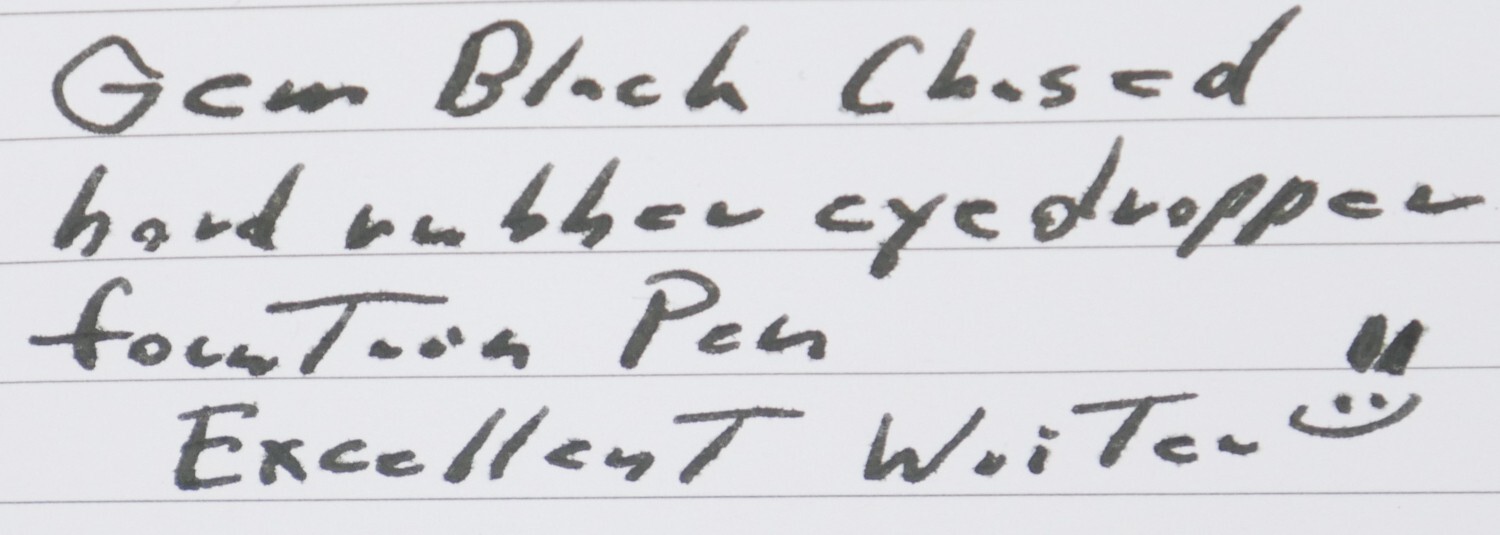 Gem Black Chased
hard rubber eyedropper
fountain Pen
Excellent Writer !! :)